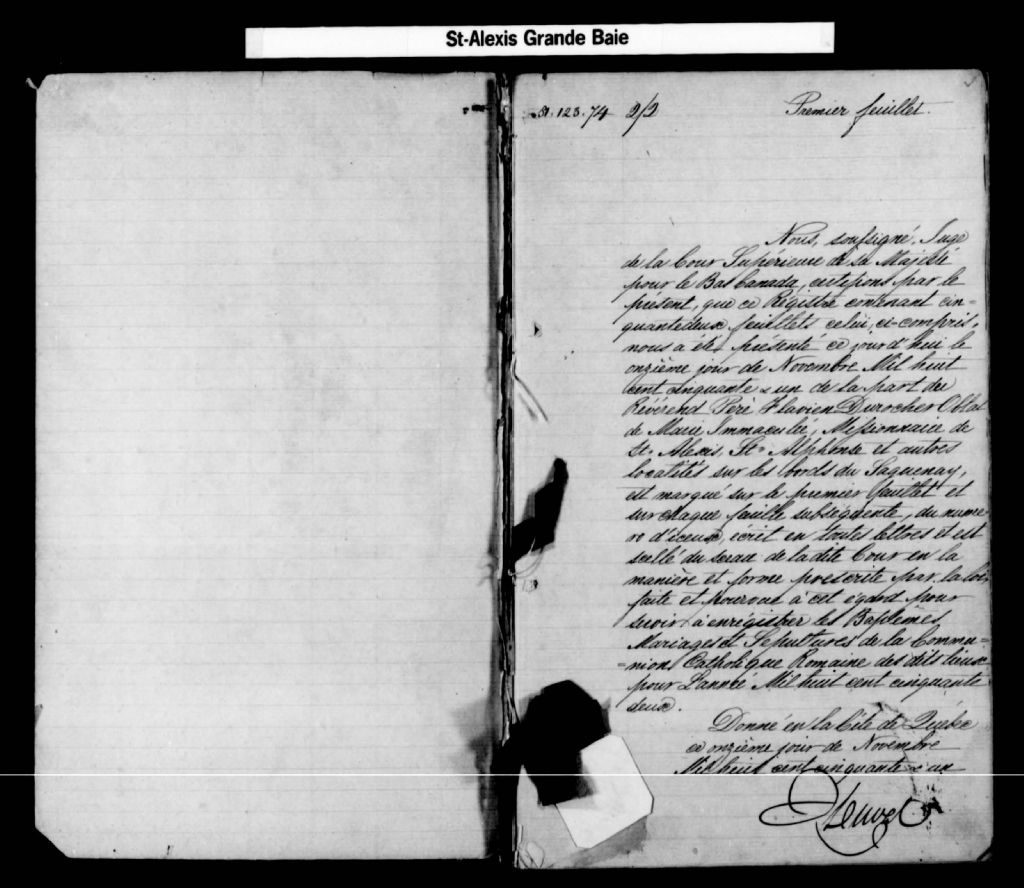 St-Alexis Grande Baie
51.123.74 2/2
Premier feuillet.
Nous, soussigné, Juge
de la Cour Supérieure de Sa Majesté
pour le Bas Canada, certifions par le
présent, que ce Régistre contenant cin-
quantedeux feuillets celui, ci-compris,
nous a été, présenté ce jourd'hui le
onzième jour de Novembre Mil huit
cent cinquante & un de la part du
Révérend Père Flavien Durocher Oblat
de Marie Immaculée, Missionnaire de
St. Alexis, St. Alphonse et autres
localités sur les bords du Saguenay,
est marqué sur le premier feuillet et
sur chaque feuille subséquente, du numé
ro d'iceux, écrit en toutes lettres et est
scellé du sceau de la dite Cour en la
manière et forme prescrite par la loi,
faite et pourvue à cet égard pour
servir à enrégistrer les Baptêmes
Mariages et Sépultures de la Commu=
=nion Catholique Romaine des dits lieux
pour L'année Mil huit cent cinquante
deux.
Donné en la Cité de Québec
ce onzième jour de Novembre
Mil huit cent cinquante & un